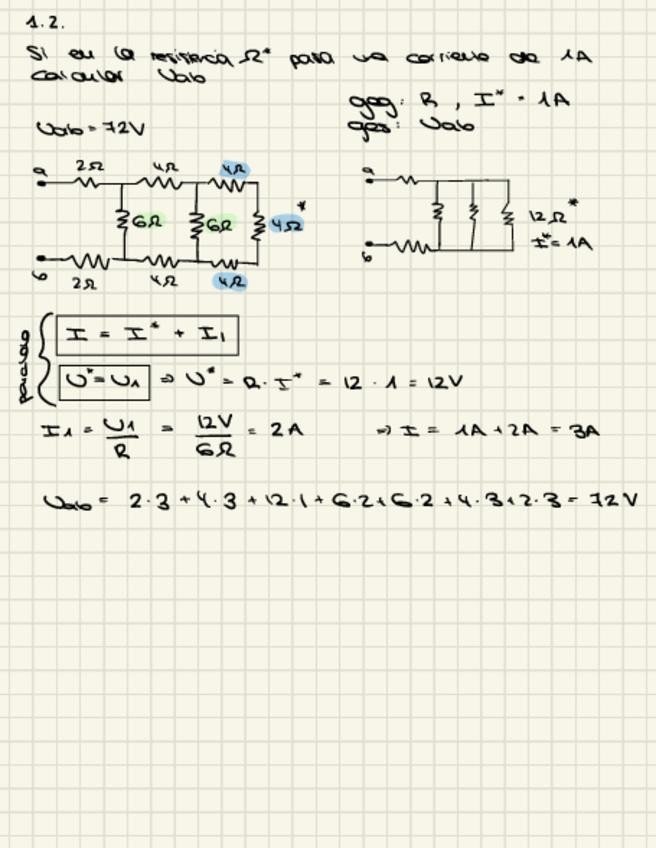 1.2.
Si en la resistencia Ω* pasa una corriente de 1A
calcular Uab
geg: R, I* = 1A
ges: Uab
Uab = 72V
a 2Ω 4Ω 4Ω
6Ω 6Ω 4Ω *
b 2Ω 4Ω 4Ω
a
12Ω *
I* = 1A
b
I = I* + I1
U* = U1 ⇒ U* = R · I* = 12 · 1 = 12V
I1 = U1/R = 12V/6Ω = 2A ⇒ I = 1A + 2A = 3A
Uab = 2·3 + 4·3 + 12·1 + 6·2 + 6·2 + 4·3 + 2·3 = 72V